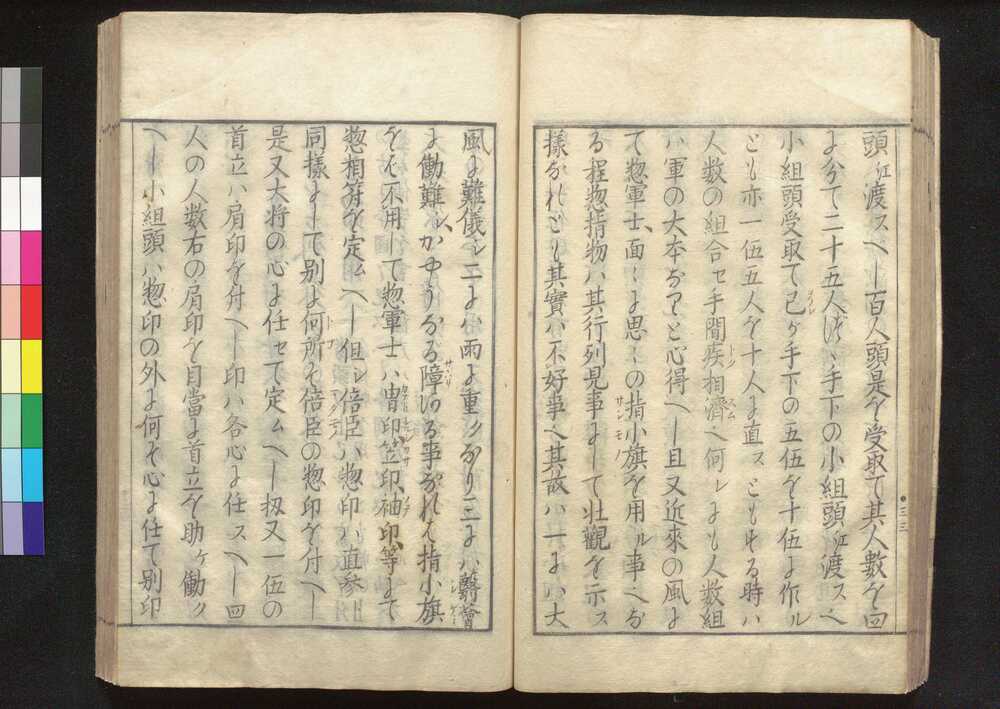 頭江渡スヘし百人頭是を受取て其人數を四
に分て二十五人ツヽ手下の小組頭江渡スヘ
小組頭受取て己カ手下の五伍を十伍に作ル
とも亦一伍五人を十人に直スともする時ハ
人数の組合セ手間疾相濟ヘ何レにも人数組
ハ軍の大本なりと心得ヘし且又近來の風に
て惣軍士、面〻に思〻の指小旗を用ル事ヘな
る程惣指物ハ其行列見事にして壮觀を示ス
樣なれとも其實ハ不好事ヘ其故ハ一にハ大
風に難儀シ二に小雨に重クなり三にハ蘙薈
に働難シ、かやうなる障ある事なれは指小旗
をは不用て惣軍士ハ冑印笠印袖印等にて
惣相符を定ムヘし但シ倍臣ハ惣印ハ直参
同樣にして別に何所そ倍臣の惣印を付ヘし
是又大将の心に任セて定ムヘし扨又一伍の
首立ハ肩印を付ヘし印ハ各心に任スヘし四
人の人数右の肩印を目當に首立を助ケ働ク
ヘし小組頭ハ惣印の外に何そ心に任て別印
三三